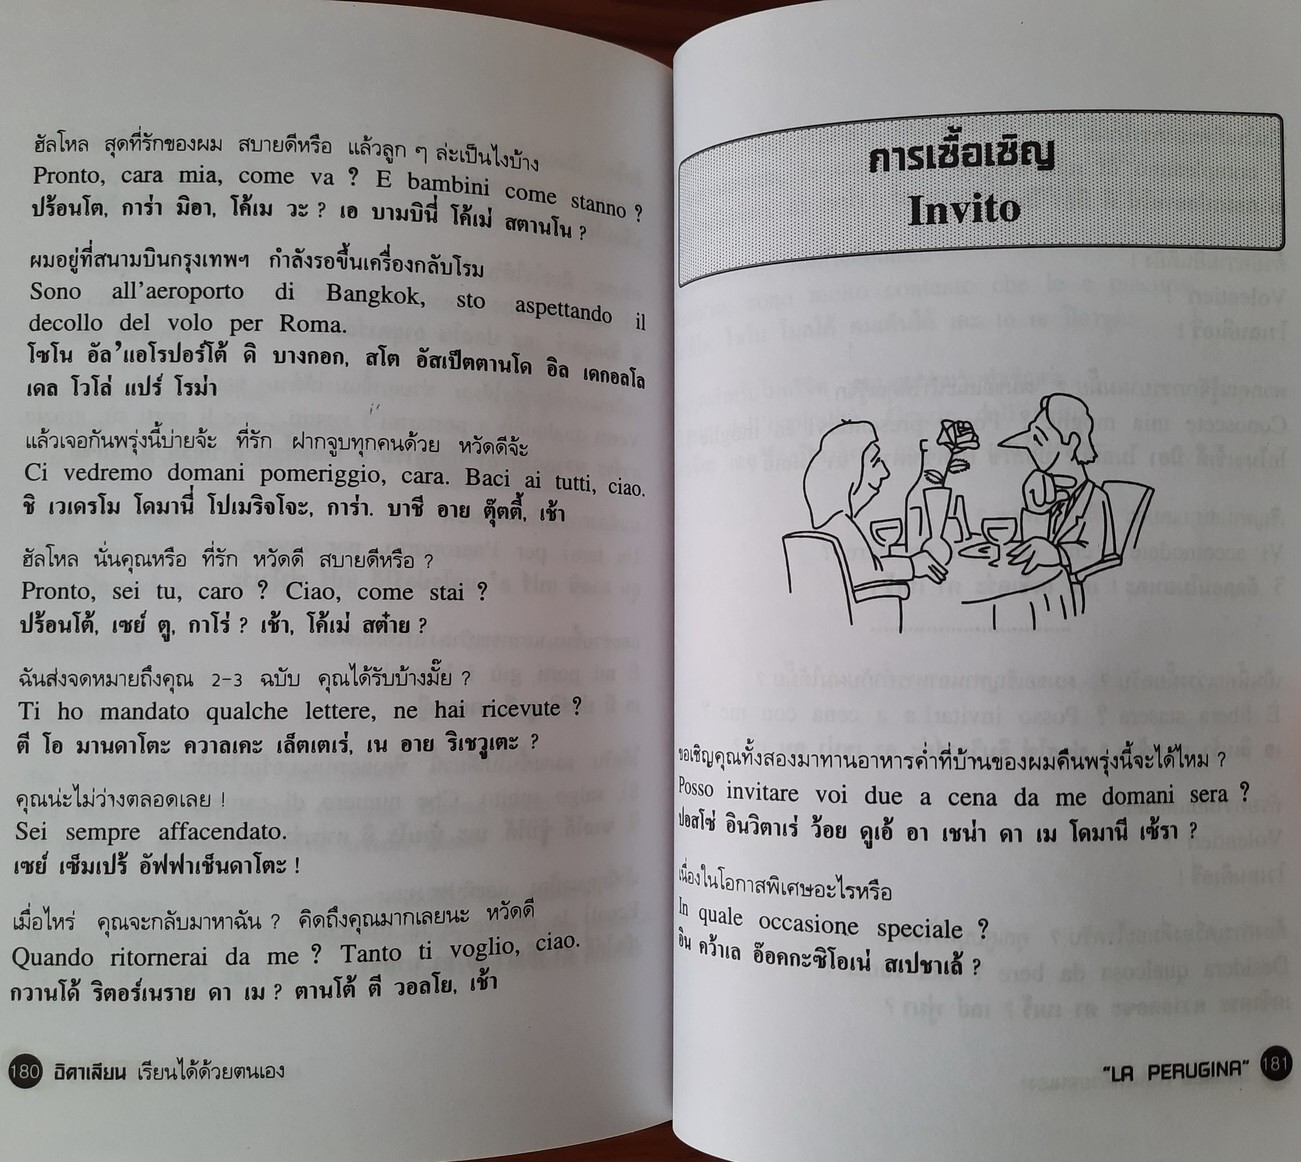 ฮัลโหล สุดที่รักของผม สบายดีหรือ แล้วลูก ๆ ล่ะเป็นไงบ้าง
Pronto, cara mia, come va ? E bambini come stanno ?
ปร้อนโต, การ่า มิอา, โค้เม วะ ? เอ บามบินี่ โค้เม่ สตานโน ?
ผมอยู่ที่สนามบินกรุงเทพฯ กำลังรอขึ้นเครื่องกลับโรม
Sono all'aeroporto di Bangkok, sto aspettando il
decollo del volo per Roma.
โซโน อัล'แอโรปอร์โต้ ดิ บางกอก, สโต อัสเป็ตตานโด อิล เดกอลโล
เดล โวโล่ แปร์ โรม่า
แล้วเจอกันพรุ่งนี้บ่ายจ้ะ ที่รัก ฝากจูบทุกคนด้วย หวัดดีจ้ะ
Ci vedremo domani pomeriggio, cara. Baci ai tutti, ciao.
ชิ เวเดรโม โดมานี่ โปเมริจโจะ, การ่า. บาชี อาย ตุ๊ตตี้, เช้า
ฮัลโหล นั่นคุณหรือ ที่รัก หวัดดี สบายดีหรือ ?
Pronto, sei tu, caro ? Ciao, come stai ?
ปร้อนโต้, เซย์ ตู, กาโร่ ? เช้า, โค้เม่ สต๋าย ?
ฉันส่งจดหมายถึงคุณ 2-3 ฉบับ คุณได้รับบ้างมั๊ย ?
Ti ho mandato qualche lettere, ne hai ricevute ?
ตี โอ มานดาโตะ ควาลเคะ เล็ตเตเร่, เน อาย ริเชวูเตะ ?
คุณน่ะไม่ว่างตลอดเลย !
Sei sempre affacendato.
เซย์ เซ็มเปร้ อัฟฟาเช็นดาโตะ !
เมื่อไหร่ คุณจะกลับมาหาฉัน ? คิดถึงคุณมากเลยนะ หวัดดี
Quando ritornerai da me ? Tanto ti voglio, ciao.
กวานโด้ ริตอร์เนราย ดา เม ? ตานโต้ ตี วอลโย, เช้า
180 อิตาเลียน เรียนได้ด้วยตนเอง
การเชื้อเชิญ
Invito
ขอเชิญคุณทั้งสองมาทานอาหารค่ำที่บ้านของผมคืนพรุ่งนี้จะได้ไหม ?
Posso invitare voi due a cena da me domani sera ?
ปอสโซ่ อินวิตาเร่ ว้อย ดูเอ้ อา เชน่า ดา เม โดมานี เซ้รา ?
เนื่องในโอกาสพิเศษอะไรหรือ
In quale occasione speciale ?
อิน คว้าเล อ๊อคกะซิโอเน่ สเปชาเล้ ?
"LA PERUGINA" 181